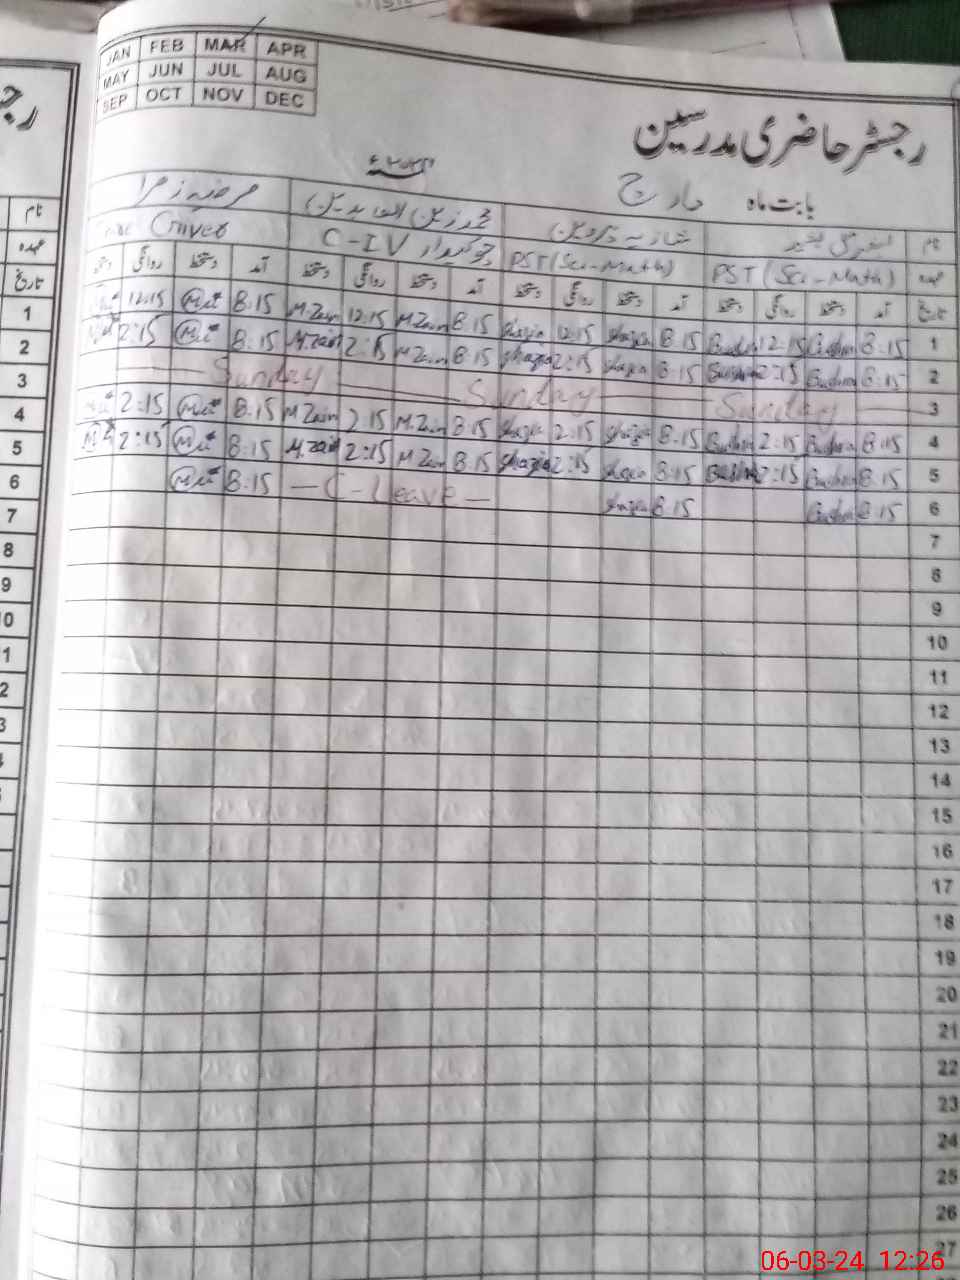 JAN FEB MAR APR
MAY JUN JUL AUG
SEP OCT NOV DEC
رجسٹر حاضری مدرسین
بابت ماہ مارچ
نام شازیہ پروین
عہدہ PST (Sci-Math) PST (Sci-Math) چوکیدار C-IV
تاریخ آمد دستخط روانگی دستخط آمد دستخط روانگی دستخط آمد دستخط روانگی دستخط آمد دستخط روانگی دستخط
1 8:15 Bushra 12:15 Bushra 8:15 Shazia 12:15 Shazia 8:15 M.Zain 12:15 M.Zain 8:15 12:15
2 8:15 Bushra 2:15 Bushra 8:15 Shazia 2:15 Shazia 8:15 M.Zain 2:15 M.Zain 8:15 2:15
3 Sunday Sunday Sunday
4 8:15 Bushra 2:15 Bushra 8:15 Shazia 2:15 Shazia 8:15 M.Zain 2:15 M.Zain 8:15 2:15
5 8:15 Bushra 2:15 Bushra 8:15 Shazia 2:15 Shazia 8:15 M.Zain 2:15 M.Zain 8:15 2:15
6 8:15 Bushra 8:15 Shazia — C-Leave — 8:15
7
8
9
10
11
12
13
14
15
16
17
18
19
20
21
22
23
24
25
26
27
نام
عہدہ
تاریخ
1
2
3
4
5
6
7
8
9
06-03-24 12:26